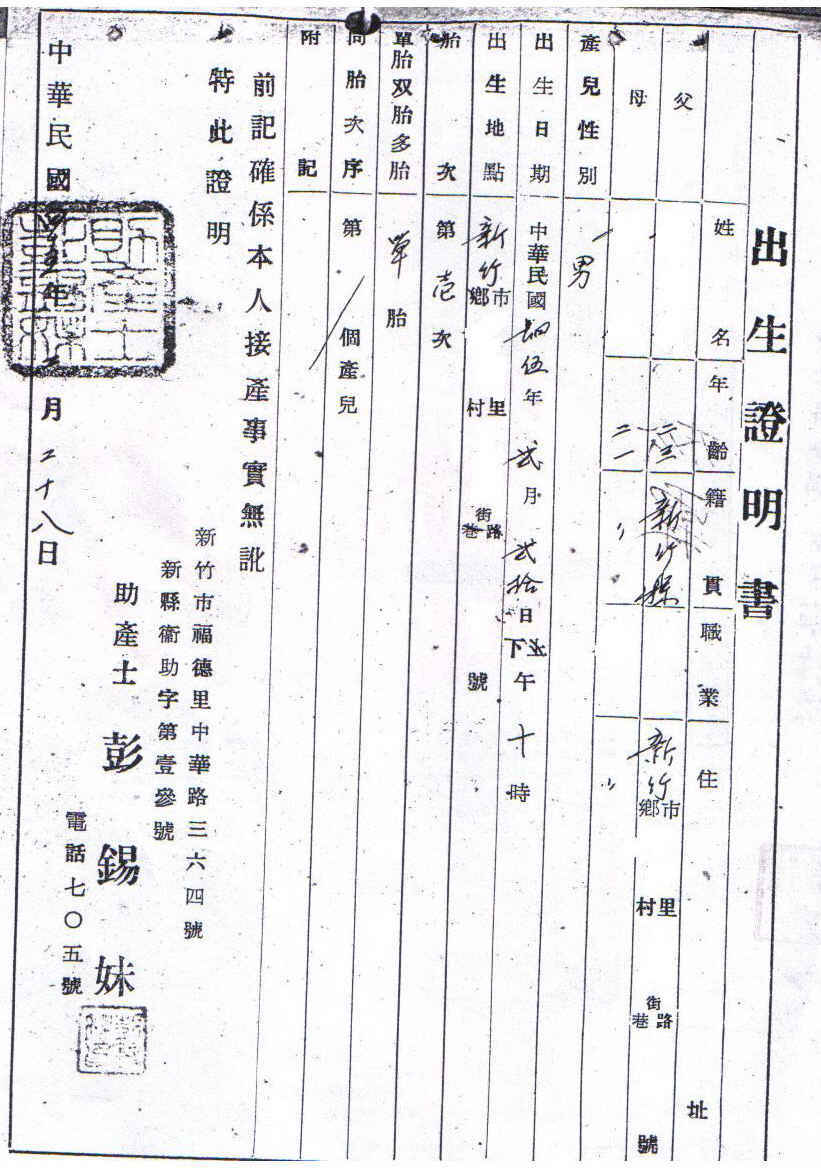 出生證明書
姓名 年齡 籍貫 職業 住址
父 二三 新竹縣 新竹 市鄉 里村 街路巷 號
母 二一 〃 〃
產兒性別 男
出生日期 中華民國 肆伍年 弍月 弍拾日 上下午 十時
出生地點 新竹 市鄉 里村 街路巷 號
胎次 第壱次
單胎双胎多胎 單胎
同胎次序 第 個產兒
附記
前記確係本人接產事實無訛
特此證明
新竹市福德里中華路三六四號
新縣衛助字第壹參號
助產士 彭錫妹
電話七〇五號
中華民國四五年二月二十八日